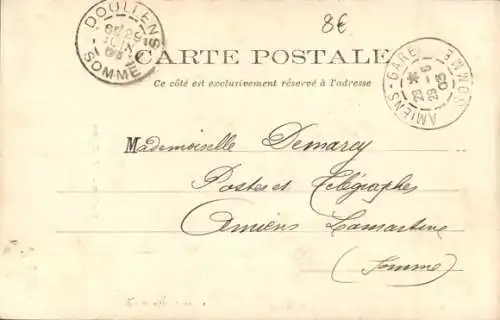 8€
DOULLENS
SOMME
CARTE POSTALE
Ce côté est exclusivement réservé à l'adresse
AMIENS-GARE
SOMME
Mademoiselle Demarcy
Postes et Télégraphes
Amiens Lamartine
(Somme)